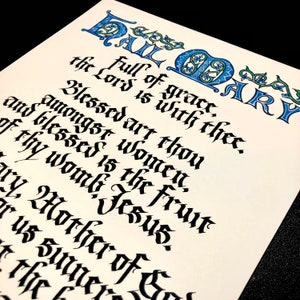 Hail Mary
full of grace,
the Lord is with thee.
Blessed art thou
amongst women,
and blessed is the fruit
of thy womb, Jesus.
ary, Mother of God
or us sinners
n the h